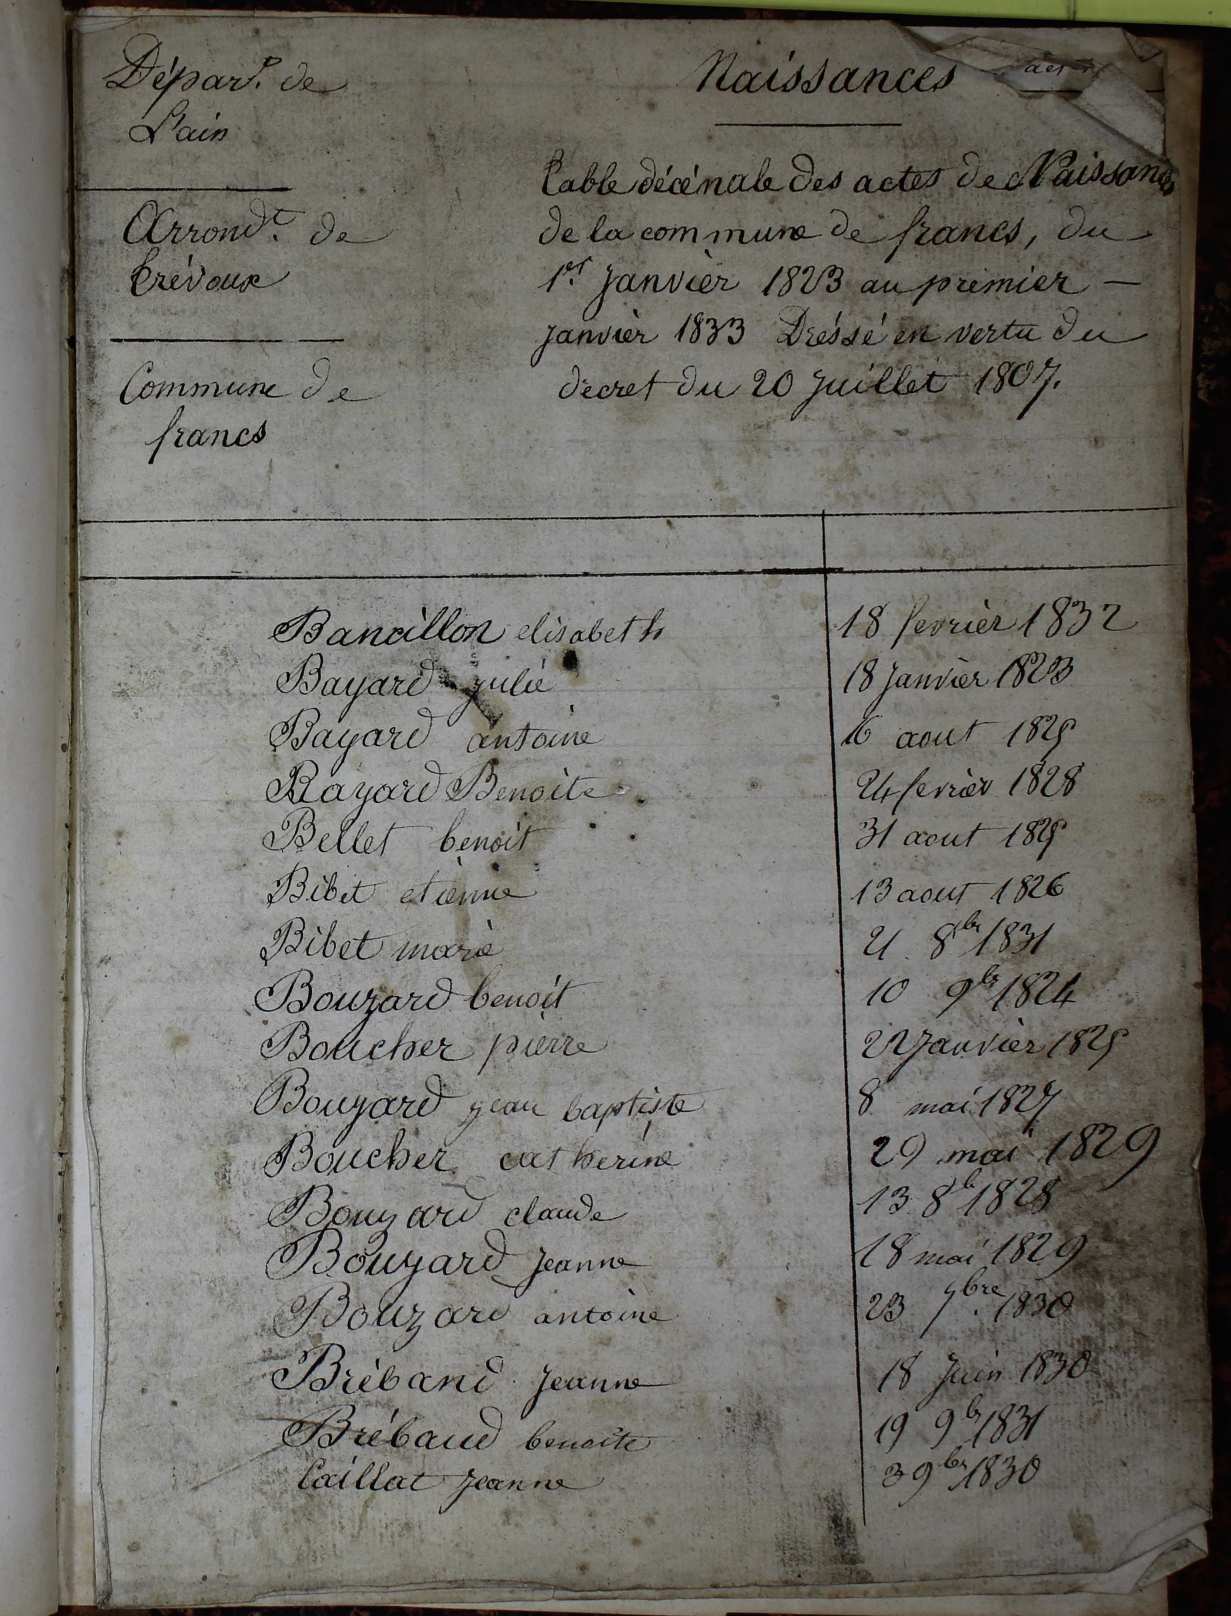 Départ. de
L'ain
Arrond.t de
trévoux
Commune de
francs
Naissances
table décénale des actes de Naissances
de la commune de francs, du
1er Janvièr 1823 au premier —
janvièr 1833 Dréssé en vertu du
décret du 20 Juillet 1807.
Bancillon elisabeth 18 fevrièr 1832
Bayard julie 18 janvièr 1823
Bayard antoine 16 aout 1825
Bayard Benoite 24 fevrièr 1828
Bellet benoit 31 aout 1825
Bibet etienne 13 aout 1826
Bibet marie 21 8bre 1831
Bouzard benoit 10 9bre 1824
Boucher pierre 22 Janvièr 1825
Bouyard jean baptiste 8 mai 1827
Boucher catherine 29 mai 1829
Bouzard claude 13 8b 1828
Bouyard Jeanne 18 mai 1829
Bouzard antoine 23 7bre 1830
Bréband Jeanne 18 Juin 1830
Brébaud benoite 19 9b 1831
Caillat Jeanne 3 9bre 1830